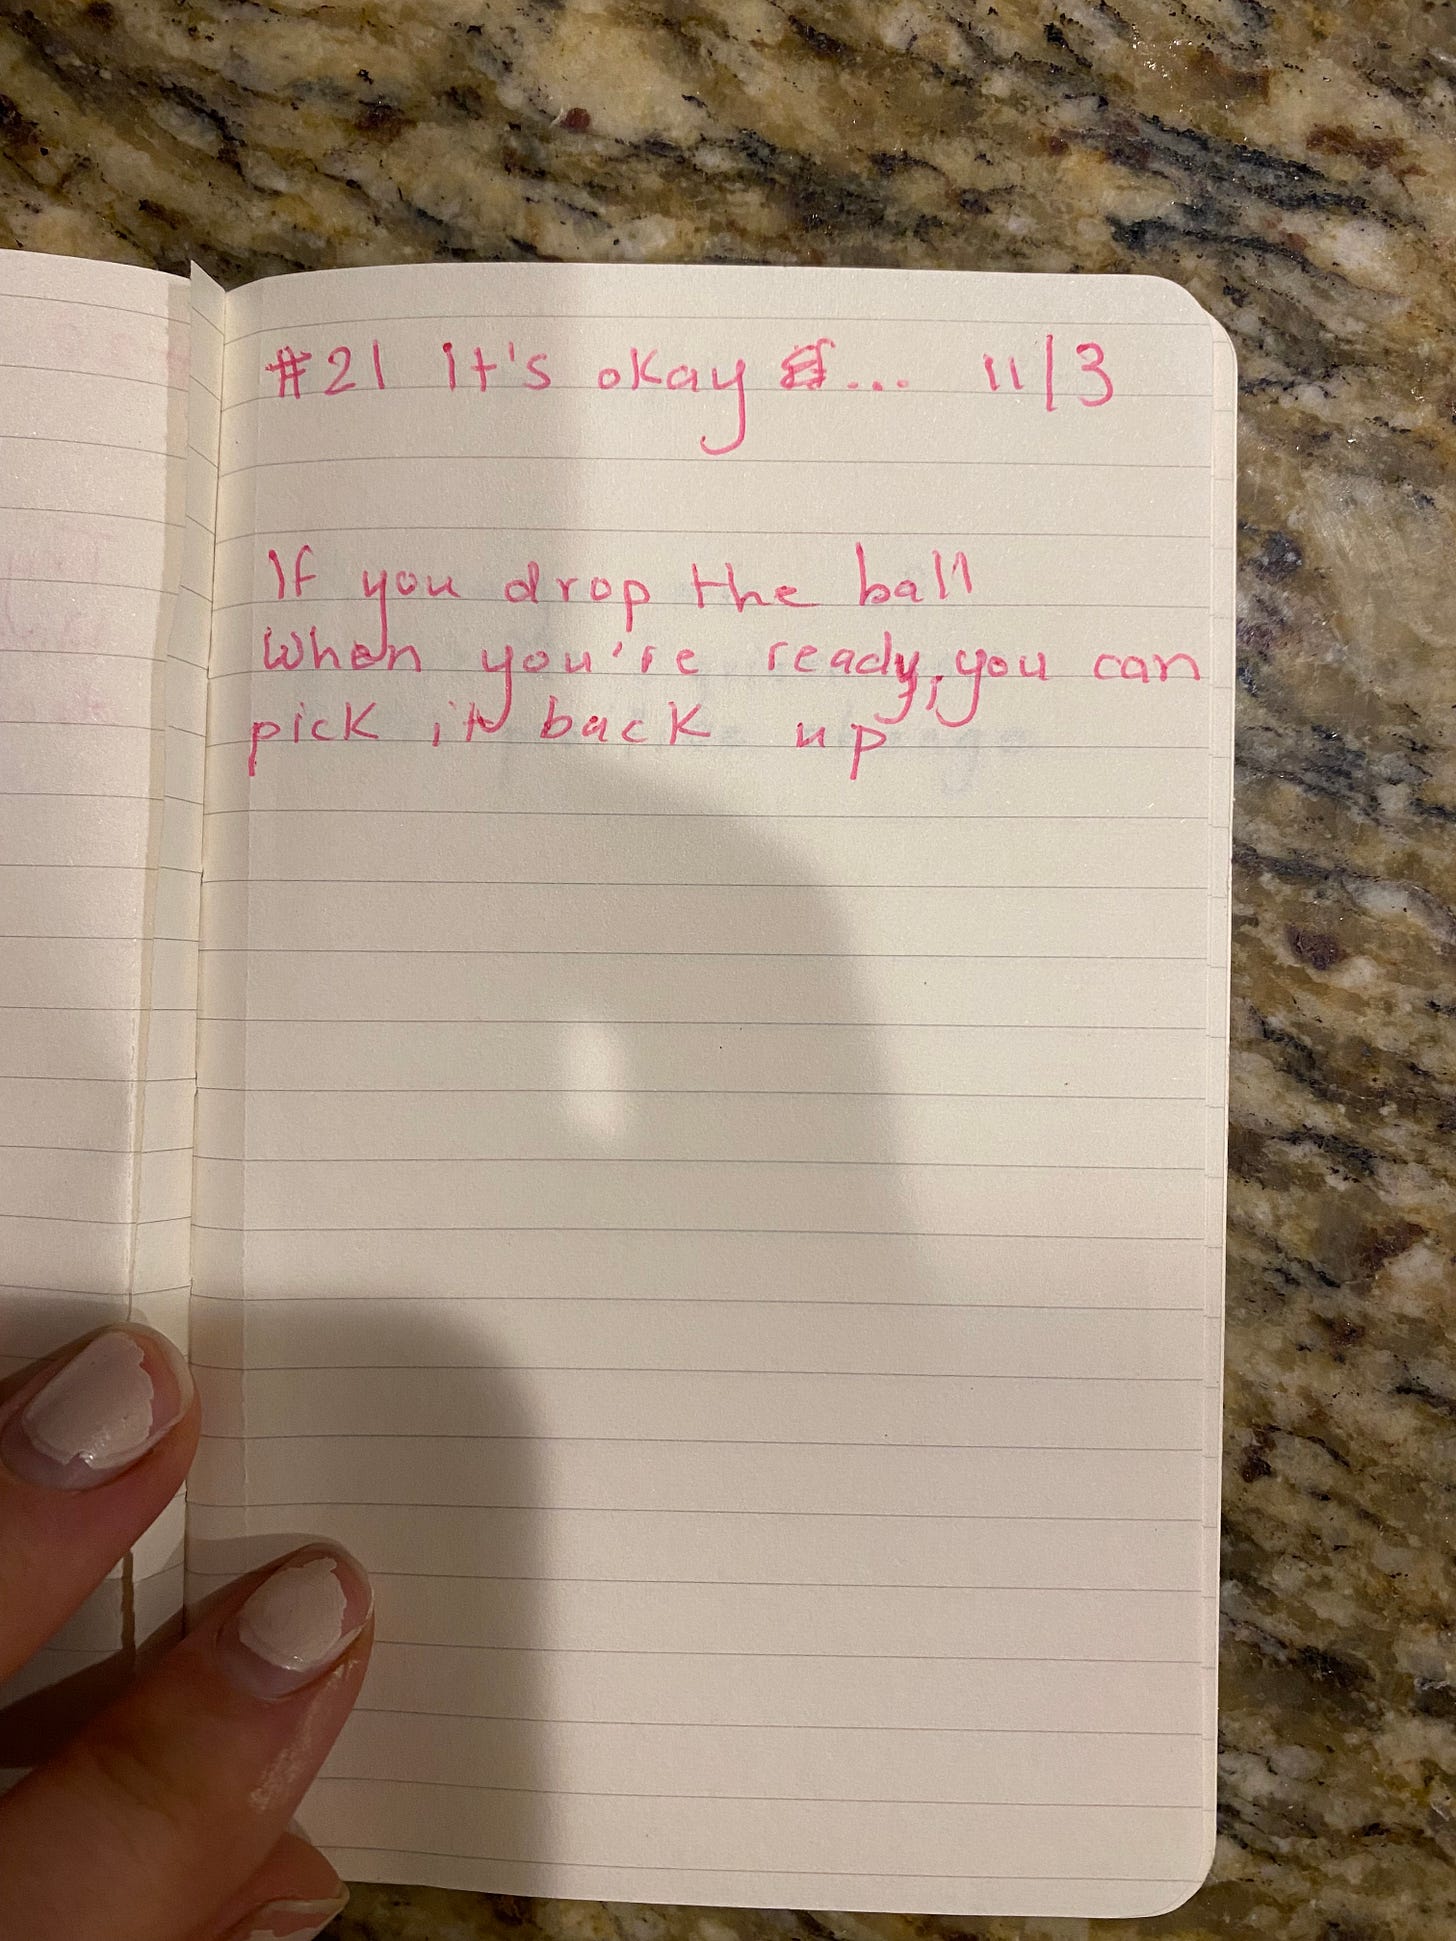 #21 it's okay ... 11/3
If you drop the ball
when you're ready, you can
pick it back up